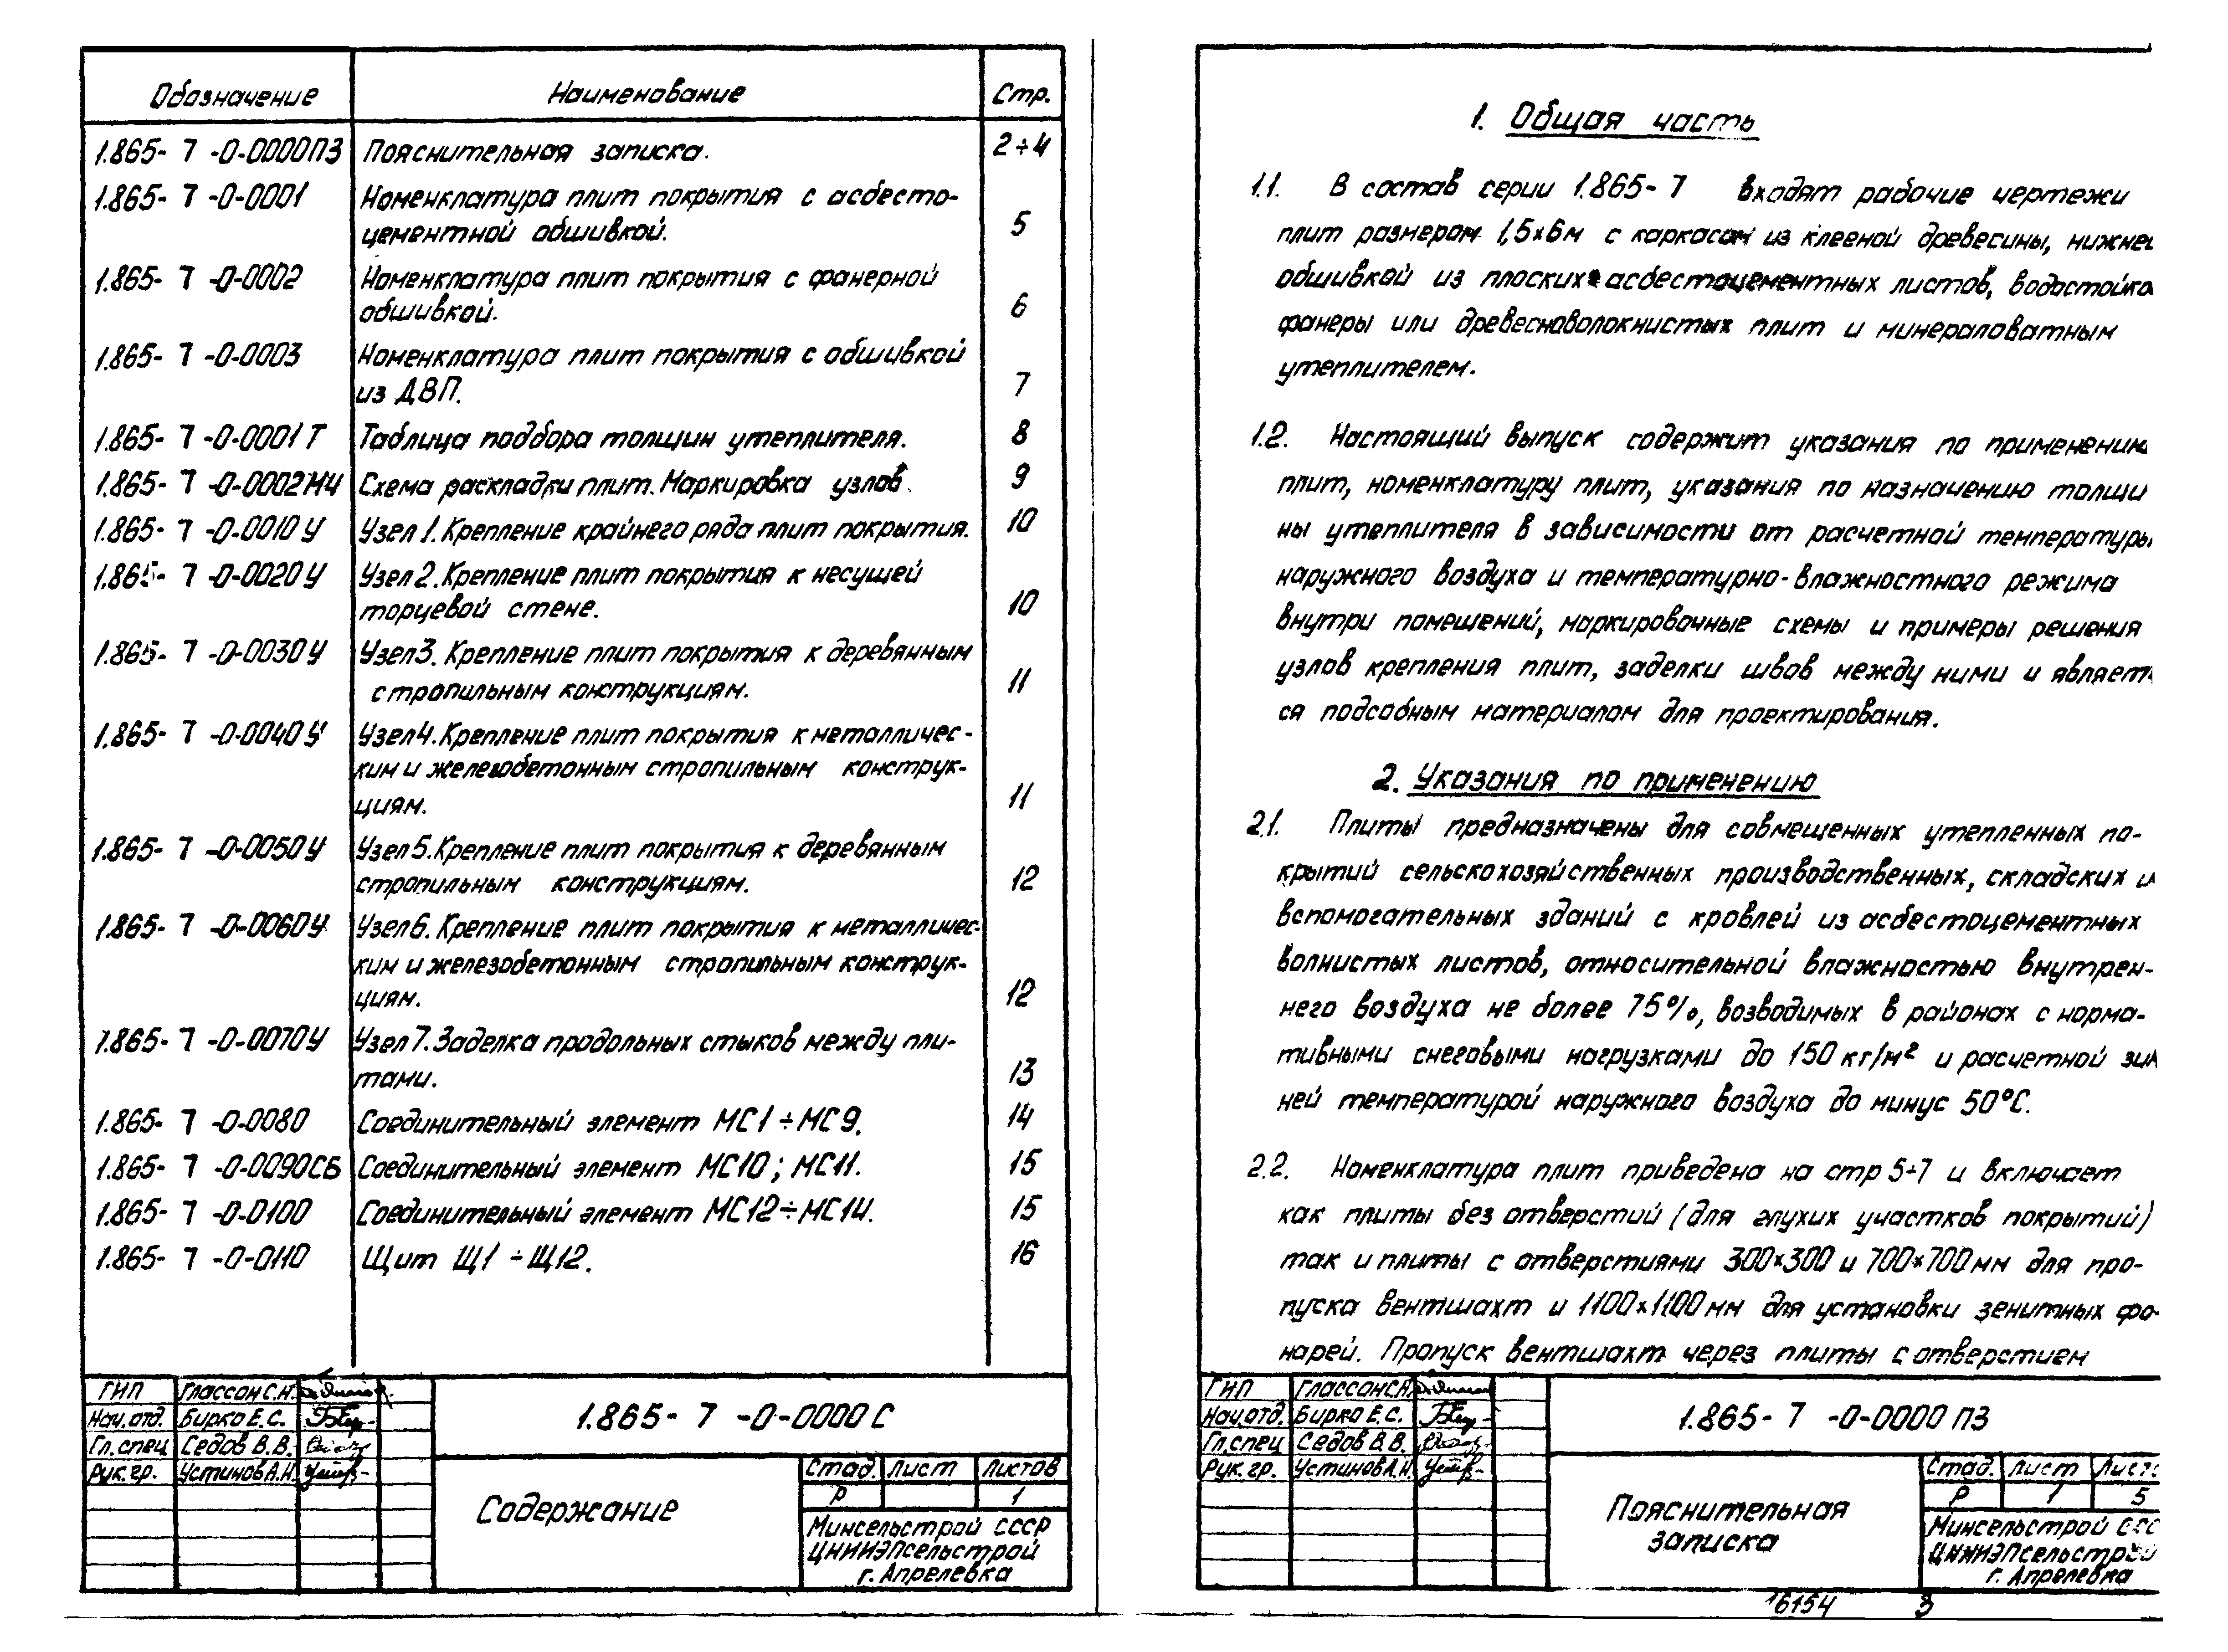 Обозначение Наименование Стр.
1.865- 7 -0-0000ПЗ Пояснительная записка. 2÷4
1.865- 7 -0-0001 Номенклатура плит покрытия с асбесто-
цементной обшивкой. 5
1.865- 7 -0-0002 Номенклатура плит покрытия с фанерной
обшивкой. 6
1.865- 7 -0-0003 Номенклатура плит покрытия с обшивкой
из ДВП. 7
1.865- 7 -0-0001 Т Таблица подбора толщин утеплителя. 8
1.865- 7 -0-0002МЧ Схема раскладки плит. Маркировка узлов. 9
1.865- 7 -0-0010 У Узел 1. Крепление крайнего ряда плит покрытия. 10
1.865- 7 -0-0020 У Узел 2. Крепление плит покрытия к несущей
торцевой стене. 10
1.865- 7 -0-0030 У Узел 3. Крепление плит покрытия к деревянным
стропильным конструкциям. 11
1.865- 7 -0-0040 У Узел 4. Крепление плит покрытия к металличес-
ким и железобетонным стропильным конструк-
циям. 11
1.865- 7 -0-0050 У Узел 5. Крепление плит покрытия к деревянным
стропильным конструкциям. 12
1.865- 7 -0-0060 У Узел 6. Крепление плит покрытия к металличес-
ким и железобетонным стропильным конструк-
циям. 12
1.865- 7 -0-0070 У Узел 7. Заделка продольных стыков между пли-
тами. 13
1.865- 7 -0-0080 Соединительный элемент МС1÷МС9. 14
1.865- 7 -0-0090СБ Соединительный элемент МС10; МС11. 15
1.865- 7 -0-0100 Соединительный элемент МС12÷МС14. 15
1.865- 7 -0-0110 Щит Щ1 ÷ Щ12. 16
ГИП Глассон С.Н.
Нач.отд. Бирко Е.С.
Гл.спец Седов В.В.
Рук.гр. Устинов А.Н.
1.865- 7 -0-0000 С
Содержание
Стад. Лист Листов
Р 1
Минсельстрой СССР
ЦНИИЭПсельстрой
г. Апрелевка
1. Общая часть
1.1. В состав серии 1.865- 7 входят рабочие чертежи
плит размером 1,5×6м с каркасом из клееной древесины, нижне
обшивкой из плоских асбестоцементных листов, водостойко
фанеры или древесноволокнистых плит и минераловатным
утеплителем.
1.2. Настоящий выпуск содержит указания по применению
плит, номенклатуру плит, указания по назначению толщи
ны утеплителя в зависимости от расчетной температуры
наружного воздуха и температурно-влажностного режима
внутри помещений, маркировочные схемы и примеры решения
узлов крепления плит, заделки швов между ними и являет
ся подсобным материалом для проектирования.
2. Указания по применению
2.1. Плиты предназначены для совмещенных утепленных по-
крытий сельскохозяйственных производственных, складских и
вспомогательных зданий с кровлей из асбестоцементных
волнистых листов, относительной влажностью внутрен-
него воздуха не более 75%, возводимых в районах с норма-
тивными снеговыми нагрузками до 150 кг/м² и расчетной зим
ней температурой наружного воздуха до минус 50°С.
2.2. Номенклатура плит приведена на стр 5÷7 и включает
как плиты без отверстий (для глухих участков покрытий)
так и плиты с отверстиями 300×300 и 700×700мм для про-
пуска вентшахт и 1100×1100 мм для установки зенитных фо-
нарей. Пропуск вентшахт через плиты с отверстием
ГИП Глассон С.Н.
Нач.отд. Бирко Е.С.
Гл.спец Седов В.В.
Рук.гр. Устинов А.Н.
1.865- 7 -0-0000 ПЗ
Пояснительная
записка
Стад. Лист Листо
Р 1 5
Минсельстрой ССС
ЦНИИЭПсельстрой
г. Апрелевка
16154 3